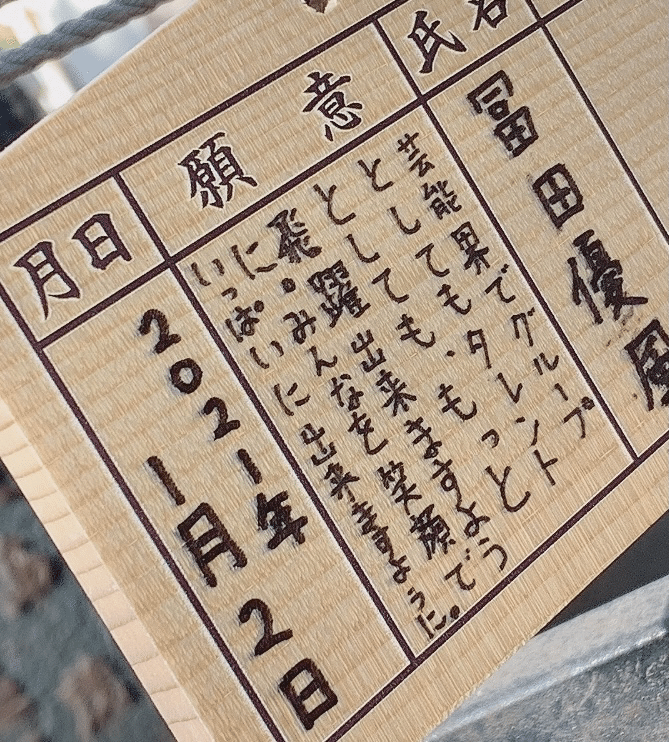 氏名
冨田優風
願意
芸能界でグループ
としても、タレント
としても、もっと
飛躍出来ますよう
に。みんなを笑顔で
いっぱいに出来ますように。
月日
2021年
1月2日